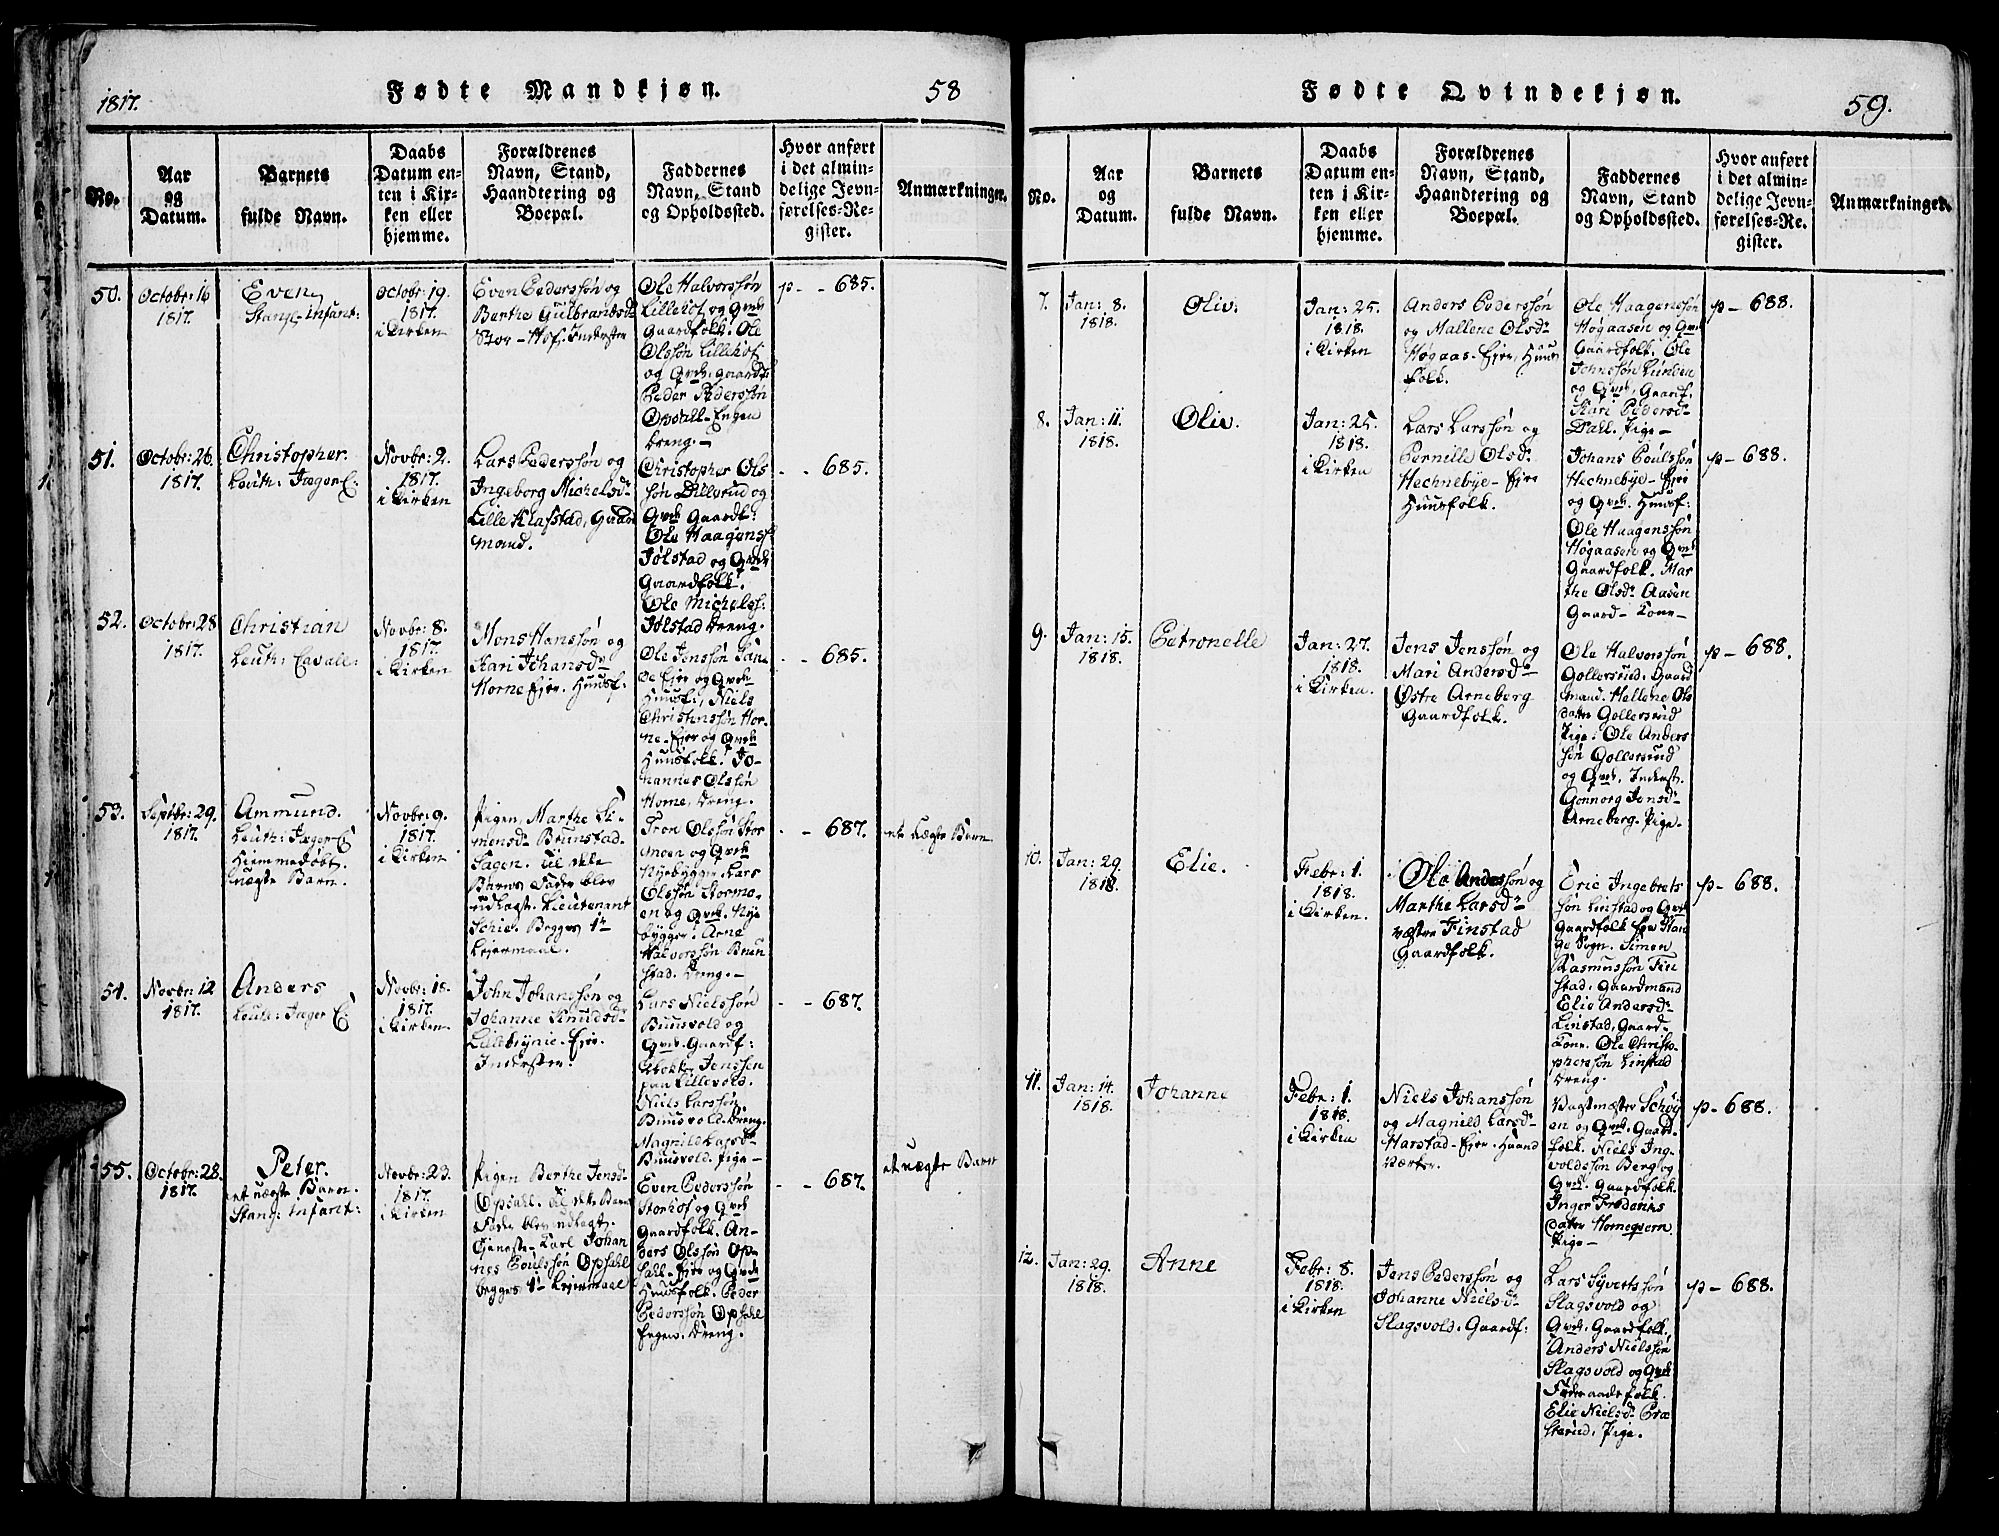 1817.
Fødte Mandkjøn.
58
No.
Aar
og
Datum.
Barnets
fulde Navn.
Daabs
Datum en-
ten i Kir-
ken eller
hjemme.
Forældrenes
Navn, Stand,
Haandtering og
Boepæl.
Faddernes
Navn, Stand
og Opholdssted.
Hvor anført
i det almin-
delige Jevn-
førelses-Re-
gister.
Anmærkninger.
50.
Octobr: 16
1817.
Even
Stang: Infant:
Octobr: 19.
1817.
i Kirken
Even Pederssøn og
Berthe Gulbrandsd:
Stor-Hof. Inderster
Ole Halvorssøn
Lillehof og Qvd:
Gaardfolk. Ole
Olssøn Lillehof
og Qvd: gaardf:
Peder Pederssøn
Opsall-Engen
Dreng.-
p- - 685.
51.
Octobr: 26.
1817.
Christopher.
Leuth: Jæger C:
Novbr: 2.
1817.
i Kirken
Lars Pederssøn og
Ingeborg Michelsd:
Lille Klafstad, Gaard
mand.
Christopher Ols
søn Dillerud og
Qvd: Gaardf:
Ole Haagenss:
Jølstad og Qvd:
Gaardfolk.
Ole Michelss:
Jølstad Dreng.
- - 685.
52.
Octobr: 28
1817.
Christian
Leuth: Cavall:
Novbr: 8.
1817.
i Kirken
Mons Hanssøn og
Kari Johansd:
Horne Ejer. Huusf.
Ole Jenssøn Lun
de Ejer og Qvd:
Huusf:, Niels
Christenssøn Hor-
ne-Ejer og Qvd:
Huusfolk. Jo-
hannes Olssøn
Horne, Dreng.
- - 685.
53.
Septbr: 29.
1817.
Ammund.
Leuth: Jæger C:
Hjemmedøbt.
uægte Barn.
Novbr: 9.
1817.
i Kirken
Pigen, Marthe Si-
mensd: Brunstad-
Sagen. Til dette
Barns Fader blev
udlagt. Lieutenant
Schie. Begges 1te
Lejermaal.
Tron Olssøn Stor
moen og Qvd:
Nyebygger. Lars
Olssøn Stormo-
en og Qvd: Nye
bygger. Arne
Halvorssøn Brun
stad. Dreng.-
- - 687.
et uægte Barn
54.
Novbr: 12
1817.
Anders
Leuth: Jæger C:
Novbr: 18.
1817.
i Kirken
John Johanssøn og
Johanne Knudsd:
Lillebrynie. Ejer.
Inderster.
Lars Nielssøn
Buusvold og
Qvd: Gaardf:
Jenssen
paa Lillevold.
Niels Larssøn.
Buusvold. Dreng.
Magnild Larsd:
Buusvold. Pige-
- - 687.
55.
Octobr: 28.
1817.
Peter.
et uægte Barn.
Stang: Infant:
Novbr: 23.
1817.
i Kirken
Pigen Berthe Jensd:
Opsahl. Til dette Barns
Fader blev udlagt.
Tjeneste-Karl Johan
nes Poulssøn Opsahl
begges 1te Lejermaal
Even Pederssøn
Storhof og Qvd:
Gaardfolk. An-
ders Olssøn Op-
sahl-Ejer og Qvd:
Huusfolk. Peder
Pederssøn Opsahl
Engen. Dreng.
- - 687.
et uægte Barn
Fødte Qvindekjøn.
59.
No.
Aar
og
Datum.
Barnets
fulde Navn.
Daabs
Datum en-
ten i Kir-
ken eller
hjemme.
Forældrenes
Navn, Stand,
Haandtering og
Boepæl.
Faddernes
Navn, Stand
og Opholdssted.
Hvor anført
i det almin-
delige Jevn-
førelses-Re-
gister.
Anmærkninger.
7.
Jan: 8.
1818.
Oliv.
Jan: 25.
1818.
i Kirken
Anders Pederssøn
og Mallene Olsd:
Høgaas-Ejer, Huus
folk.
Ole Haagenssøn
Høgaasen og Qvd:
Gaardfolk. Ole
Johnssøn Lunden
og Qvd: Gaardf.
Kari Pedersd:
Dall. Pige-
p- 688.
8.
Jan: 11.
1818.
Oliv.
Jan: 25.
1818.
i Kirken
Lars Larssøn og
Pernille Olsd:
Hechnebye-Ejer
Huusfolk.
Johans Poulssøn
Hechnebye-Ejer
og Qvd: Huusf:
Ole Haagenssøn
Høgaasen og Qvd:
Gaardfolk. Mar
the Olsd: Aasen
Gaard-Kone-
p- 688.
9.
Jan: 15.
1818.
Petronelle
Jan: 27.
1818.
i Kirken.
Jens Jenssøn og
Mari Andersd:
Østre Arneberg
Gaardfolk.
Ole Halvorssøn
Gollersrud. Gaard
mand. Hellene Ols
datter Gollersrud
Pige. Ole Anders
søn Gollersrud
og Qvd: Inderst.
Gonnorg Jensd:
Arneberg. Pige.
p- 688.
10.
Jan: 29.
1818.
Elie.
Febr: 1.
1818.
i Kirken.
Ole Anderssøn og
Marthe Larsd:
vestre Finstad
Gaardfolk.
Eric Ingebrets
søn Linstad og Qvd:
Gaardfolk fra Stan
ge Sogn. Simen
Rasmussøn Fin
stad, Gaardmand
Elie Andersd:
Linstad, Gaard-
Kone. Ole Christo-
pherssøn Linstad
Dreng.
p- 688.
11.
Jan: 14.
1818.
Johanne
Febr: 1.
1818.
i Kirken
Niels Johanssøn
og Magnild Larsd:
Harstad-Ejer. Haand
værker.
Vagtmester Schøy
en og Qvd: Gaard-
folk. Niels Ing-
voldsøn Berg og
Qvd: Gaardfolk.
Inger Frederiks
datter Homegsern.
Pige-
p- 688.
12.
Jan: 29.
1818.
Anne
Febr: 8.
1818.
i Kirken
Jens Pederssøn og
Johanne Nielsd:
Slagsvold. Gaardf:
Lars Syvertssøn
Slagsvold og
Qvd: Gaardfolk.
Anders Nielssøn
Slagsvold og Qvd:
Føderaads folk.
Elie Nielsd: Præ
sterud. Pige.
p- 688.